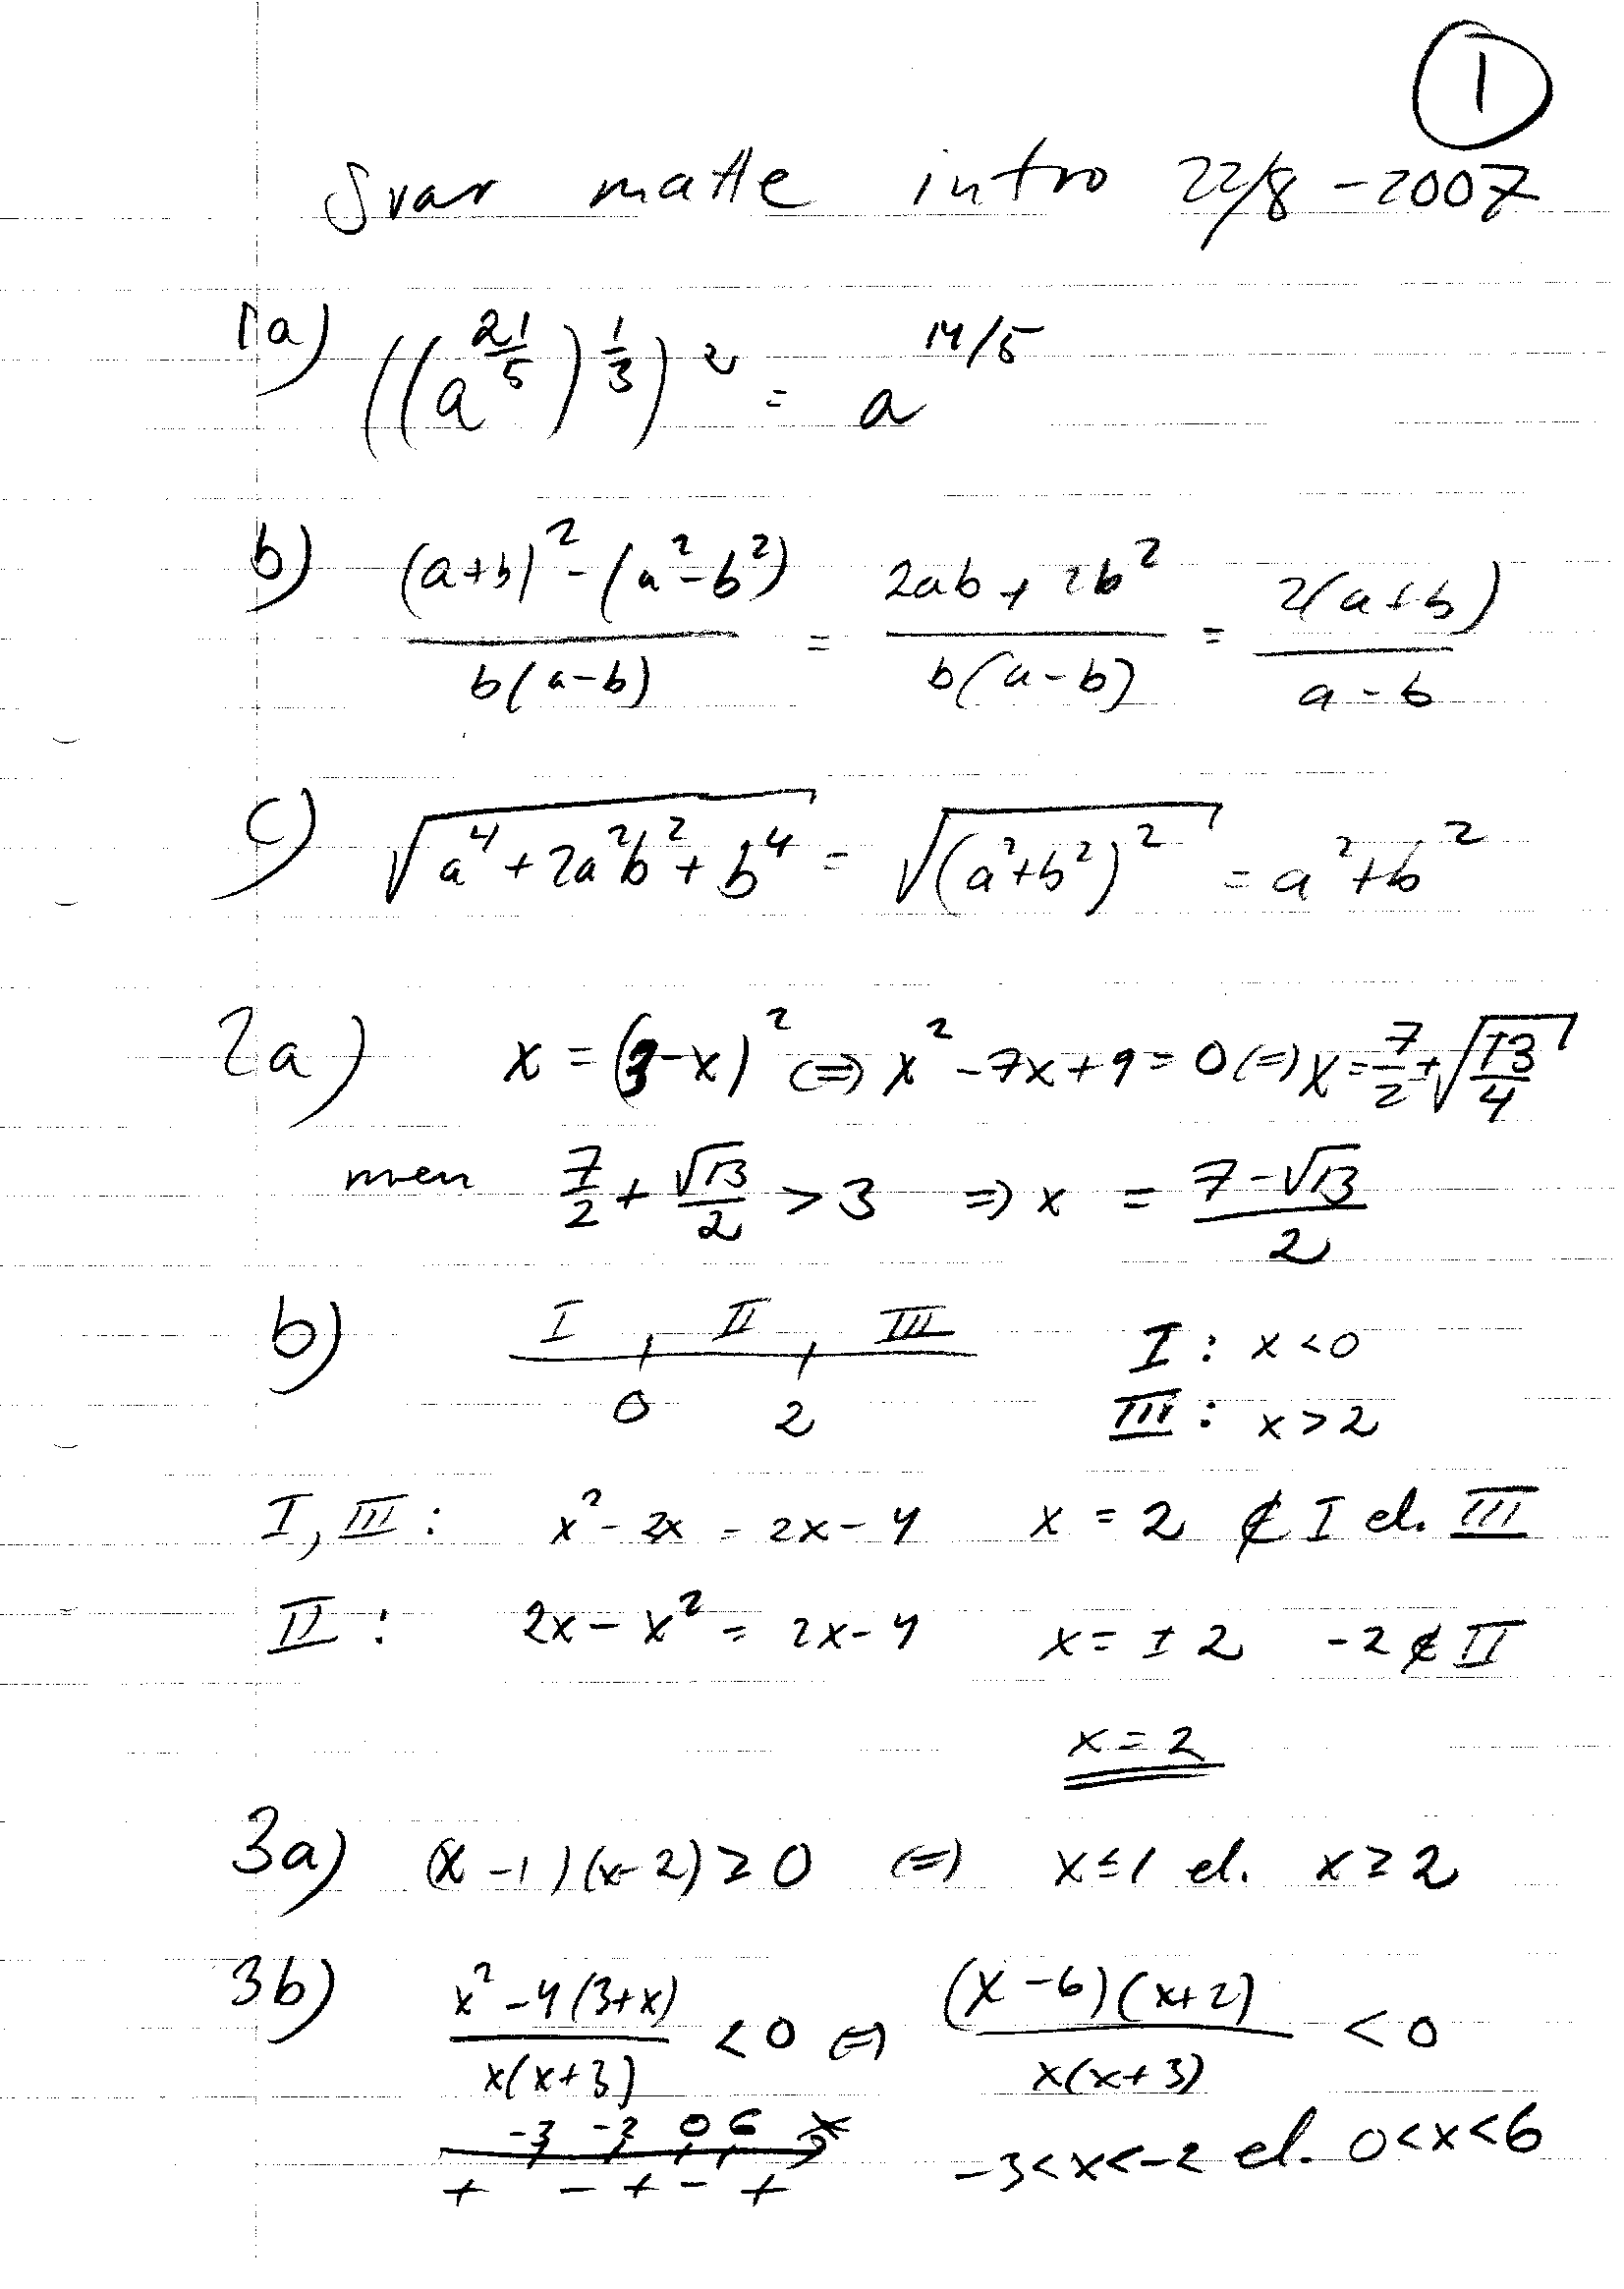 1
Svar matte intro 22/8 - 2007
1a) ((a^{21/5})^{1/3})^2 = a^{14/5}
b) \frac{(a+b)^2 - (a^2-b^2)}{b(a-b)} = \frac{2ab + 2b^2}{b(a-b)} = \frac{2(a+b)}{a-b}
c) \sqrt{a^4 + 2a^2b^2 + b^4} = \sqrt{(a^2+b^2)^2} = a^2+b^2
2a) x = (3-x)^2 ⇔ x^2 - 7x + 9 = 0 ⇔ x = \frac{7}{2} ± \sqrt{\frac{13}{4}}
men \frac{7}{2} + \frac{\sqrt{13}}{2} > 3 ⇒ x = \frac{7-\sqrt{13}}{2}
b) I II III I: x < 0
0 2 III: x > 2
I, III: x^2 - 2x = 2x - 4 x = 2 ∉ I el. III
II: 2x - x^2 = 2x - 4 x = ± 2 -2 ∉ II
x = 2
3a) (x-1)(x-2) ≥ 0 ⇔ x ≤ 1 el. x ≥ 2
3b) \frac{x^2 - 4(3+x)}{x(x+3)} < 0 ⇔ \frac{(x-6)(x+2)}{x(x+3)} < 0
-3 -2 0 6 x
+ - + - + -3<x<-2 el. 0<x<6